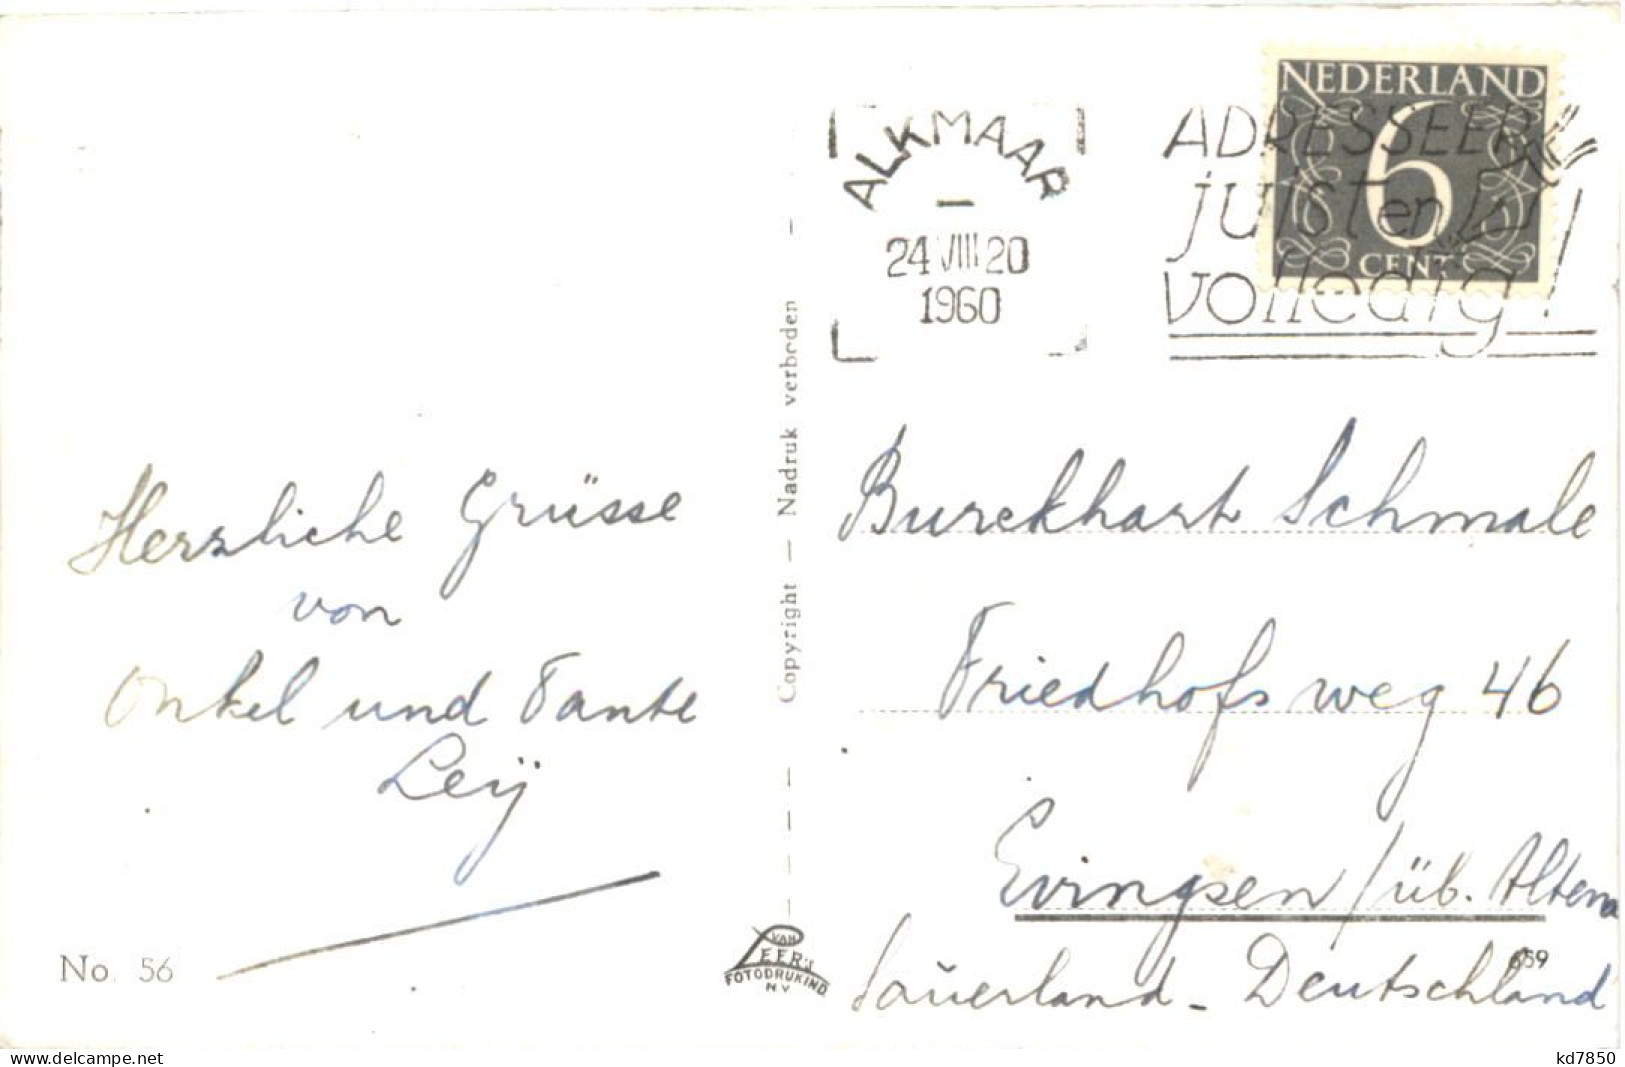 NEDERLAND
6
CENT
ALKMAAR
24 VIII 20
1960
ADRESSEER
juist en
volledig!
Herzliche Grüsse
von
Onkel und Tante
Leÿ
Copyright — Nadruk verboden
Burckhart Schmale
Friedhofsweg 46
Evingsen / üb. Altena
Sauerland - Deutschland
No. 56
VAN
LEER'S
FOTODRUKIND.
N V
659
www.delcampe.net
kd7850